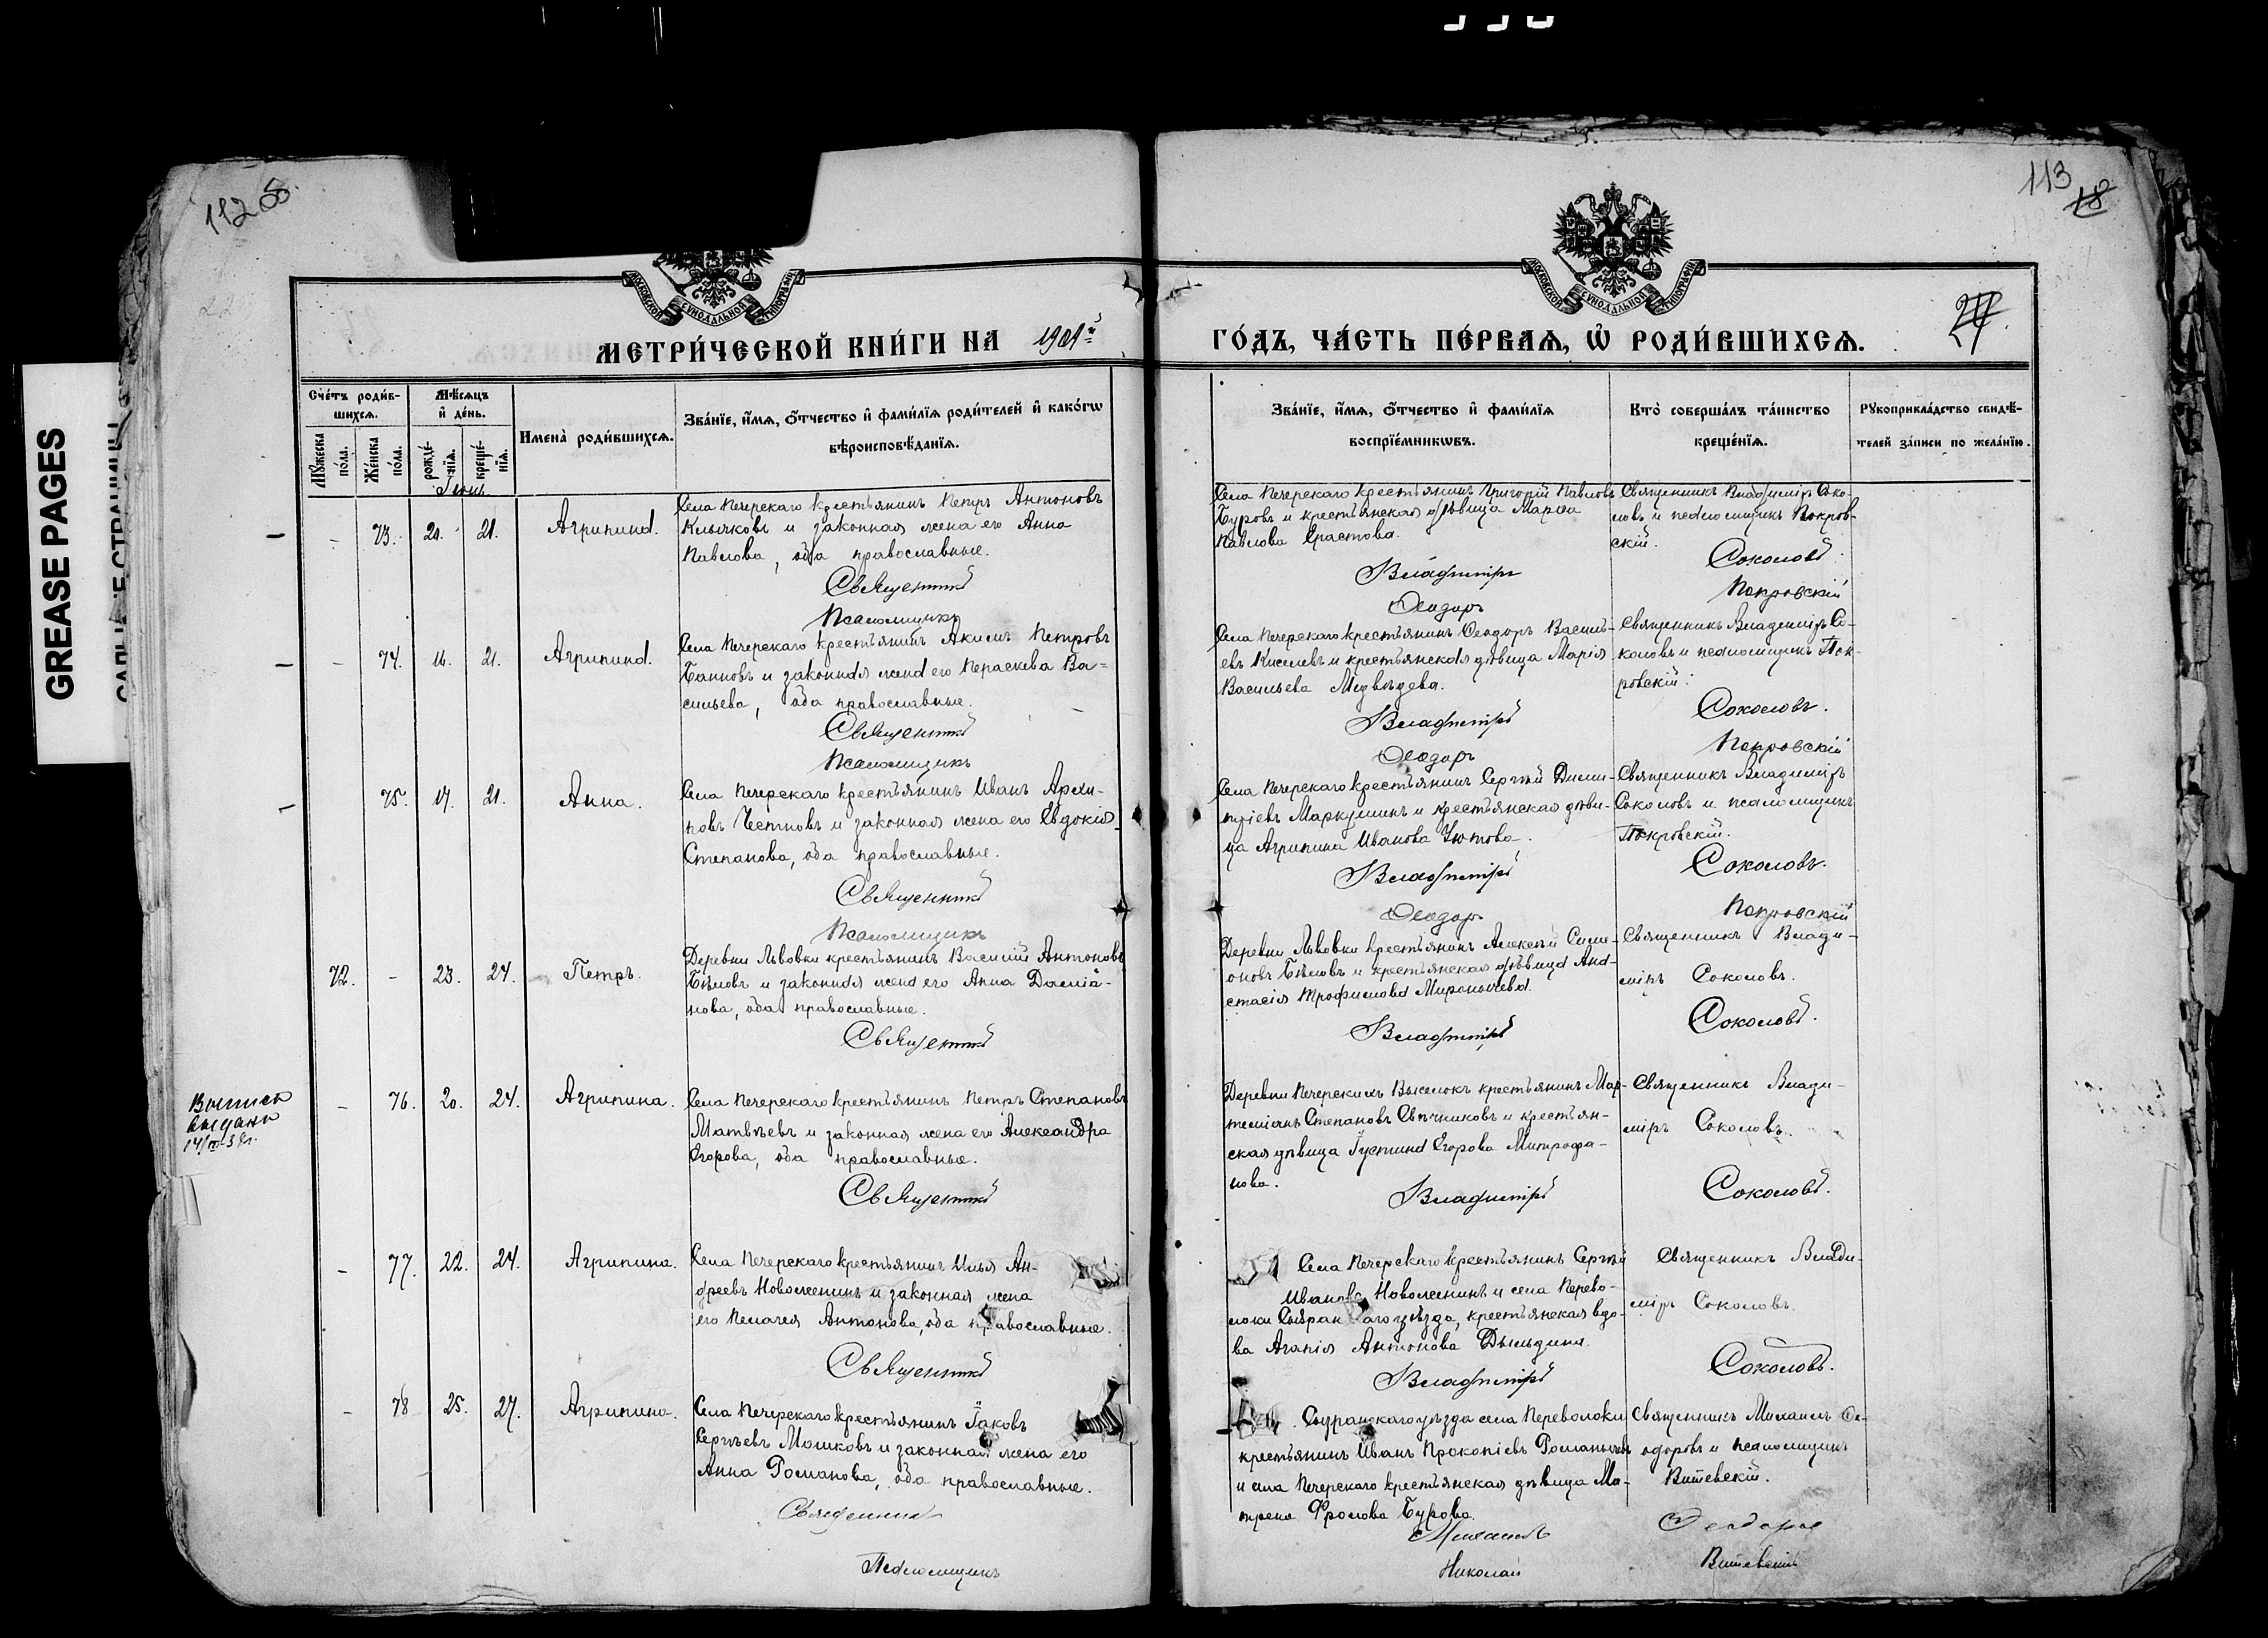 GREASE PAGES
112
113
18
МОСКОВСКОЙ СѴНОДАЛЬНОЙ ТИПОГРАФІИ
МОСКОВСКОЙ СѴНОДАЛЬНОЙ ТИПОГРАФІИ
МЕТРИ́ЧЕСКОЙ КНИ́ГИ НА 1901й
ГО́ДЪ, ЧА́СТЬ ПЕ́РВАѦ, Ѡ҆ РОДИ́ВШИХСѦ.
Сче́тъ роди́в-
шихсѧ.
Мꙋ́жеска по́ла.
Же́нска по́ла.
Мѣ́сѧцъ
и҆ де́нь.
рожде́-
нїѧ.
креще́-
нїѧ.
Имена̀ роди́вшихсѧ.
Зва́нїе, и҆́мѧ, ѻ҆́тчество и҆ фами́лїѧ роди́телей и҆ како́гѡ
вѣроисповѣ́данїѧ.
Зва́нїе, и҆́мѧ, ѻ҆́тчество и҆ фами́лїѧ
воспрїе́мникѡвъ.
Кто̀ соверша́лъ та́инство
креще́нїѧ.
Рꙋкоприкла́дство свидѣ́-
телей за́писи по жела́нїю.
Іюнь
- 73. 20. 21. Агрипина.
Села Печерскаго крестьянинъ Петръ Антоновъ
Клычковъ и законная жена его Анна
Павлова, оба православные.
Священникъ
Псаломщикъ
Села Печерскаго крестьянинъ Григорій Павловъ
Буровъ и крестьянская дѣвица Марѳа
Павлова Ерастова.
Владиміръ
Ѳеодоръ
Священникъ Владиміръ Соко-
ловъ и псаломщикъ Покров-
скій.
Соколовъ
Покровскій
- 74. 16. 21. Агрипина.
Села Печерскаго крестьянинъ Акимъ Петровъ
Баиновъ и законная жена его Параскева Ва-
сильева, оба православные.
Священникъ
Псаломщикъ
Села Печерскаго крестьянинъ Ѳеодоръ Василь-
евъ Киселевъ и крестьянская дѣвица Марія
Васильева Медвѣдева.
Владиміръ
Ѳеодоръ
Священникъ Владиміръ Со-
коловъ и псаломщикъ Пок-
ровскій.
Соколовъ.
Покровскій
75. 17. 21. Анна.
Села Печерскаго крестьянинъ Иванъ Архи-
повъ Честновъ и законная жена его Евдокія
Степанова, оба православные.
Священникъ
Псаломщикъ
Села Печерскаго крестьянинъ Сергѣй Дими-
тріевъ Маркушинъ и крестьянская дѣви-
ца Агрипина Иванова Утова.
Владиміръ
Ѳеодоръ
Священникъ Владиміръ
Соколовъ и псаломщикъ
Покровскій.
Соколовъ.
Покровскій
72. - 23. 24. Петръ.
Деревни Львовки крестьянинъ Василій Антоновъ
Бѣловъ и законная жена его Анна Даміа-
нова, оба православные.
Священникъ
Деревни Львовки крестьянинъ Алексѣй Симе-
оновъ Бѣловъ и крестьянская дѣвица Ана-
стасія Трофимова Миронычева.
Владиміръ
Священникъ Влади-
міръ Соколовъ.
Соколовъ.
Выпись
выдана
- 76. 20. 24. Агрипина.
Села Печерскаго крестьянинъ Петръ Степановъ
Матвѣевъ и законная жена его Александра
Егорова, оба православные.
Священникъ
Деревни Печерскихъ Выселокъ крестьянинъ Мар-
теміанъ Степановъ Свѣчниковъ и крестьян-
ская дѣвица Іустина Егорова Митрофа-
нова.
Владиміръ
Священникъ Влади-
міръ Соколовъ.
Соколовъ.
- 77. 22. 24. Агрипина.
Села Печерскаго крестьянинъ Илья Ан-
дреевъ Новоженинъ и законная жена
его Пелагея Антонова, оба православные.
Священникъ
Села Печерскаго крестьянинъ Сергѣй
Ивановъ Новоженинъ и села Перево-
локи Сызранскаго уѣзда, крестьянская вдо-
ва Агапія Антонова Дыльдина.
Владиміръ
Священникъ Влади-
міръ Соколовъ.
Соколовъ.
- 78 25. 27. Агрипина.
Села Печерскаго крестьянинъ Іаковъ
Сергѣевъ Мошковъ и законная жена его
Анна Романова, оба православные.
Священникъ
Псаломщикъ
Сызранскаго уѣзда села Переволоки
крестьянинъ Иванъ Прокопіевъ Романычевъ
и села Печерскаго крестьянская дѣвица Ма-
трена Фролова Бурова.
Михаилъ
Николай
Священникъ Михаилъ Ѳе-
одоровъ и псаломщикъ
Витевскій.
Ѳеодоровъ
Витевскій